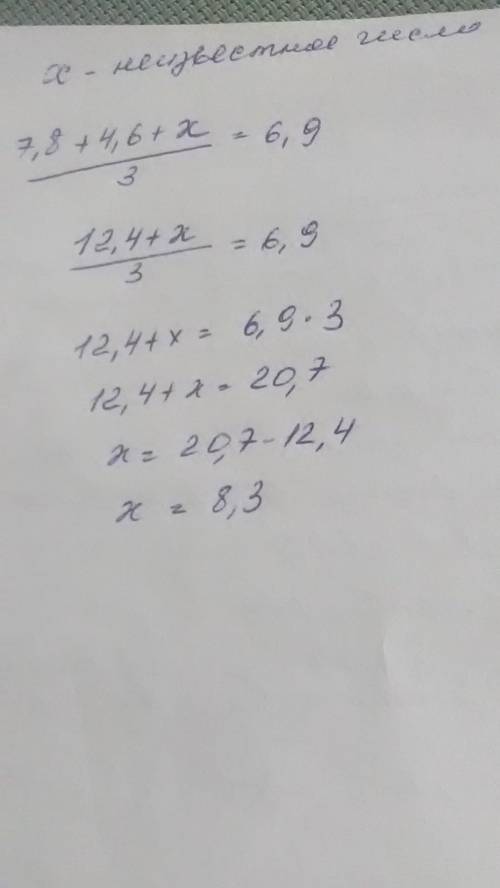 x - неизвестное число
7,8 + 4,6 + x / 3 = 6,9
12,4 + x / 3 = 6,9
12,4 + x = 6,9 · 3
12,4 + x = 20,7
x = 20,7 - 12,4
x = 8,3